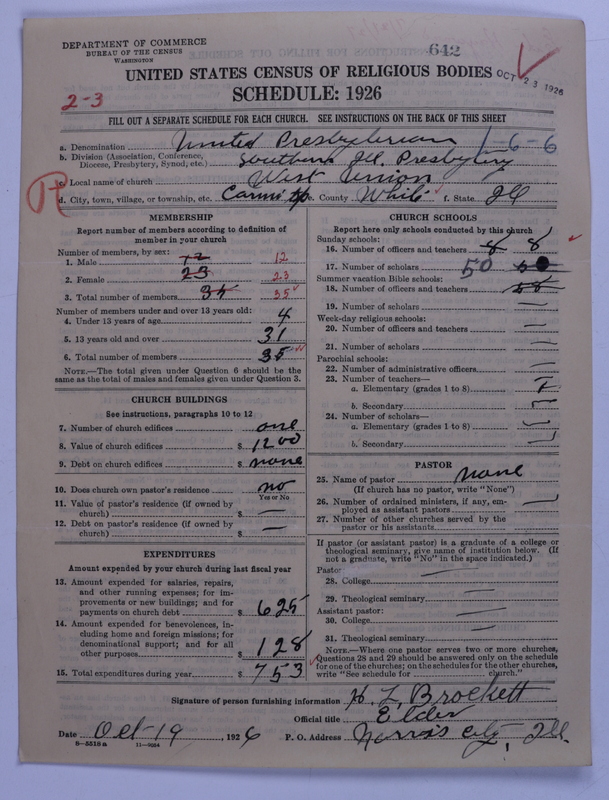 DEPARTMENT OF COMMERCE
BUREAU OF THE CENSUS
WASHINGTON
642
UNITED STATES CENSUS OF RELIGIOUS BODIES
OCT 23 1926
SCHEDULE: 1926
2-3
FILL OUT A SEPARATE SCHEDULE FOR EACH CHURCH. SEE INSTRUCTIONS ON THE BACK OF THIS SHEET
a. Denomination United Presbyterian 1-6-6
b. Division (Association, Conference, Diocese, Presbytery, Synod, etc.) Southern Ill. Presbytery
c. Local name of church West Union
d. City, town, village, or township, etc. Carmi e. County White f. State Ill
MEMBERSHIP
Report number of members according to definition of
member in your church
Number of members, by sex:
1. Male 12 12
2. Female 23 23
3. Total number of members 35 35
Number of members under and over 13 years old:
4. Under 13 years of age 4
5. 13 years old and over 31
6. Total number of members 35
NOTE.—The total given under Question 6 should be
same as the total of males and females given under Question 3.
CHURCH BUILDINGS
See instructions, paragraphs 10 to 12
7. Number of church edifices one
8. Value of church edifices $ 1200
9. Debt on church edifices $ none
10. Does church own pastor's residence no
Yes or No
11. Value of pastor's residence (if owned by
church) $ —
12. Debt on pastor's residence (if owned by
church) $ —
EXPENDITURES
Amount expended by your church during last fiscal year
13. Amount expended for salaries, repairs,
and other running expenses; for im-
provements or new buildings; and for
payments on church debt $ 625
14. Amount expended for benevolences, in-
cluding home and foreign missions; for
denominational support; and for all
other purposes $ 128
15. Total expenditures during year $ 753
CHURCH SCHOOLS
Report here only schools conducted by this church
Sunday schools:
16. Number of officers and teachers 8 8
17. Number of scholars 50
Summer vacation Bible schools:
18. Number of officers and teachers
19. Number of scholars —
Week-day religious schools:
20. Number of officers and teachers —
21. Number of scholars —
Parochial schools:
22. Number of administrative officers —
23. Number of teachers—
a. Elementary (grades 1 to 8)
b. Secondary
24. Number of scholars—
a. Elementary (grades 1 to 8)
b. Secondary
PASTOR
25. Name of pastor none
(If church has no pastor, write "None")
26. Number of ordained ministers, if any, em-
ployed as assistant pastors —
27. Number of other churches served by the
pastor or his assistants
If pastor (or assistant pastor) is a graduate of a college or
theological seminary, give name of institution below. (If
not a graduate, write "No" in the space indicated.)
Pastor:
28. College —
29. Theological seminary —
Assistant pastor:
30. College —
31. Theological seminary —
NOTE.—Where one pastor serves two or more churches,
Questions 28 and 29 should be answered only on the schedule
for one of the churches; on the schedules for the other churches,
write "See schedule for church."
Signature of person furnishing information H. L. Brockett
Official title Elder
Date Oct-19, 1926 P. O. Address Norris City, Ill.
8-5518a 11-9054